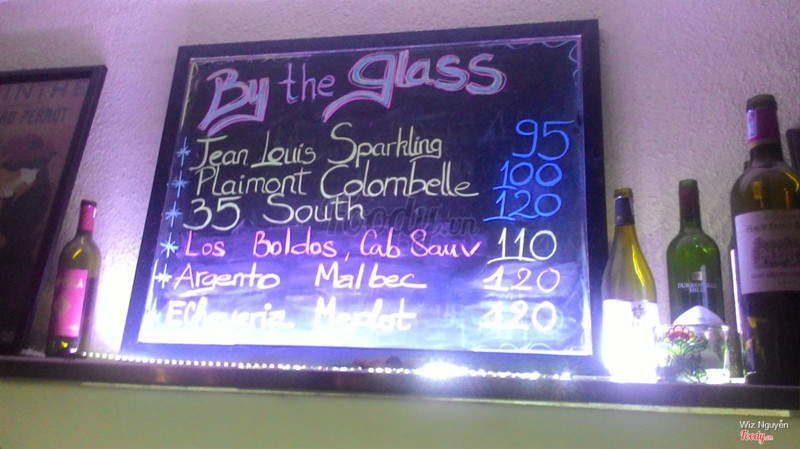 By the glass
* Jean Louis Sparkling 95
* Plaimont Colombelle 100
* 35 South 120
* Los Boldos, Cab Sauv 110
* Argento Malbec 120
Merlot 120
PERROT
Foody.vn
Wiz Nguyễn
Foody.vn